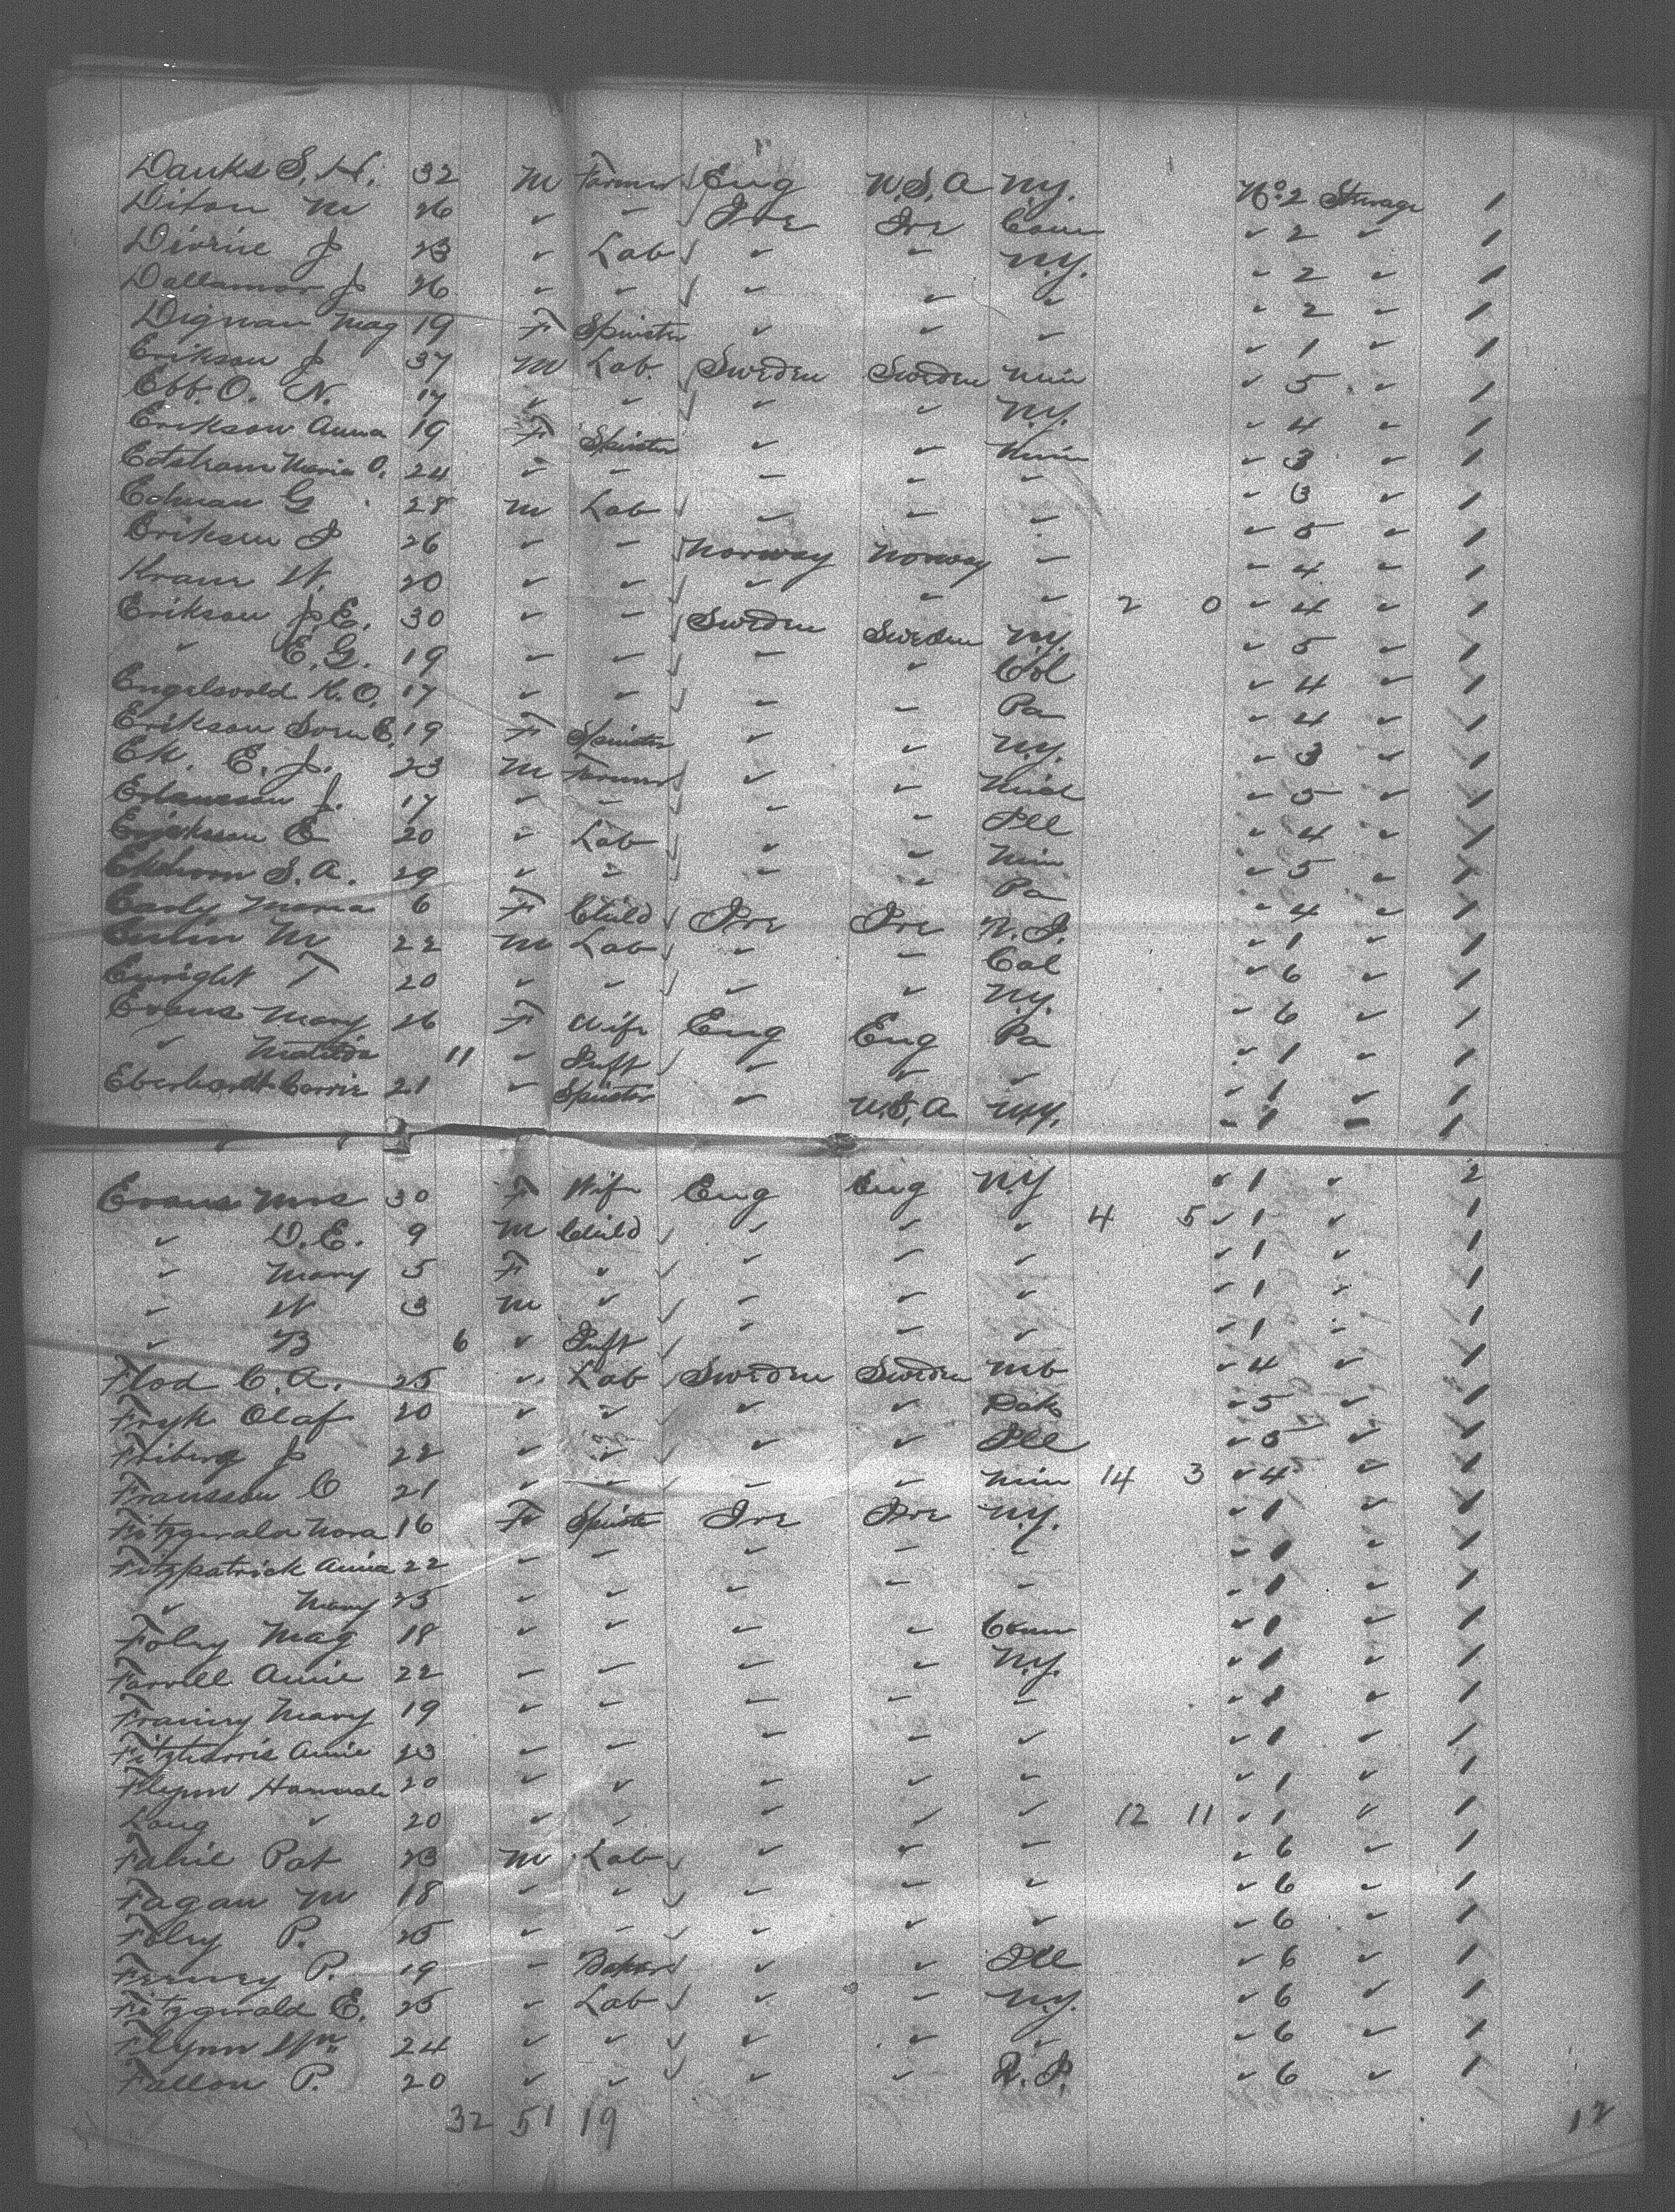 Danks S. H. 32 M Farmer Eng U.S.A N.Y. No. 2 Steerage 1
Dixon M 26 ✓ - Ire Ire Conn ✓ 2 ✓ 1
J 23 ✓ Lab ✓ ✓ N.Y. ✓ 2 ✓ 1
J 26 ✓ ✓ ✓ ✓ ✓ ✓ 2 ✓ 1
Dignan Mag 19 F Spinster ✓ ✓ ✓ ✓ 1 ✓ 1
Erikson J 37 M Lab. Sweden Sweden Min ✓ 5 ✓ 1
Ebb. O. N. 17 ✓ ✓ ✓ ✓ N.Y. ✓ 4 ✓ 1
Erikson Anna 19 F Spinster ✓ ✓ Min ✓ 3 ✓ 1
Maria O. 24 ✓ - - - - ✓ 3 ✓ 1
Edman G 28 M Lab - - - ✓ 5 ✓ 1
Eriksen P 26 ✓ - Norway Norway - ✓ 4 ✓ 1
20 ✓ ✓ ✓ ✓ ✓ 2 0 ✓ 4 ✓ 1
Erikson J. E. 30 ✓ - Sweden Sweden N.Y. ✓ 5 ✓ 1
✓ E. G. 19 - - - ✓ Col ✓ 4 ✓ 1
Engelsvold K. O. 17 ✓ ✓ - - Pa ✓ 4 ✓ 1
Erikson E. 19 F Spinster ✓ ✓ N.Y. ✓ 3 ✓ 1
Ek. E. J. 23 M Farmer ✓ ✓ Mich ✓ 5 ✓ 1
J. 17 ✓ - - - Ill ✓ 4 ✓ 1
Eriksson E 20 ✓ Lab ✓ ✓ Min ✓ 5 ✓ 1
S. A. 29 ✓ ✓ - ✓ Pa ✓ 4 ✓ 1
Early Maria 6 F Child Ire Ire N. J. ✓ 1 ✓ 1
M 22 M Lab - - Cal ✓ 6 ✓ 1
Enright T 20 ✓ ✓ ✓ ✓ N.Y. ✓ 6 ✓ 1
Evans Mary 26 F Wife Eng Eng Pa ✓ 1 ✓ 1
✓ Matilda 11 ✓ Inft ✓ ✓ ✓ ✓ 1 ✓ 1
Eberhardt Carrie 21 ✓ Spinster ✓ U.S.A N.Y. - 1 - 1
Evans Mrs 30 F Wife Eng Eng N.Y ✓ 1 ✓ 2
✓ D. E. 9 M Child ✓ ✓ ✓ 4 5 ✓ 1 ✓ 1
✓ Mary 5 F ✓ ✓ ✓ ✓ ✓ 1 ✓ 1
✓ W 3 M ✓ ✓ ✓ ✓ ✓ 1 ✓ 1
✓ B 6 ✓ Inft ✓ ✓ ✓ ✓ 1 ✓ 1
Flod C. A. 25 ✓ Lab Sweden Sweden ✓ 4 ✓ 1
Fryk Olaf 20 ✓ ✓ ✓ ✓ Dak ✓ 5 ✓ 1
Friberg J 22 ✓ ✓ ✓ ✓ Ill ✓ 5 ✓ 1
Fransson C 21 ✓ ✓ - ✓ Min 14 3 ✓ 4 ✓ 1
Fitzgerald Nora 16 F Spinster Ire Ire N.Y. ✓ 1 ✓ 1
Fitzpatrick Annie 22 - - - - - ✓ 1 ✓ 1
✓ Mary 25 ✓ ✓ - - - ✓ 1 ✓ 1
Foley Mag 18 ✓ ✓ - ✓ Conn ✓ 1 ✓ 1
Farrell Annie 22 - - - ✓ N.Y. ✓ 1 ✓ 1
Mary 19 ✓ - - - - ✓ 1 ✓ 1
Fitzharris Annie 23 - - - - ✓ ✓ 1 ✓ 1
Flynn Hannah 20 ✓ ✓ ✓ ✓ ✓ ✓ 1 ✓ 1
Long ✓ 20 ✓ ✓ ✓ ✓ ✓ 12 11 ✓ 1 ✓ 1
Fahie Pat 23 M Lab ✓ ✓ - ✓ 6 ✓ 1
Fagan M 18 ✓ ✓ ✓ ✓ ✓ ✓ 6 ✓ 1
Foley P. 25 ✓ - ✓ ✓ ✓ ✓ 6 ✓ 1
P. 19 - Baker ✓ ✓ Ill ✓ 6 ✓ 1
Fitzgerald E. 25 ✓ Lab ✓ ✓ N.Y. ✓ 6 ✓ 1
Flynn Wm. 24 ✓ ✓ ✓ ✓ ✓ ✓ 6 ✓ 1
Fallon P. 20 ✓ ✓ ✓ ✓ R. I. ✓ 6 ✓ 1
32 51 19
12